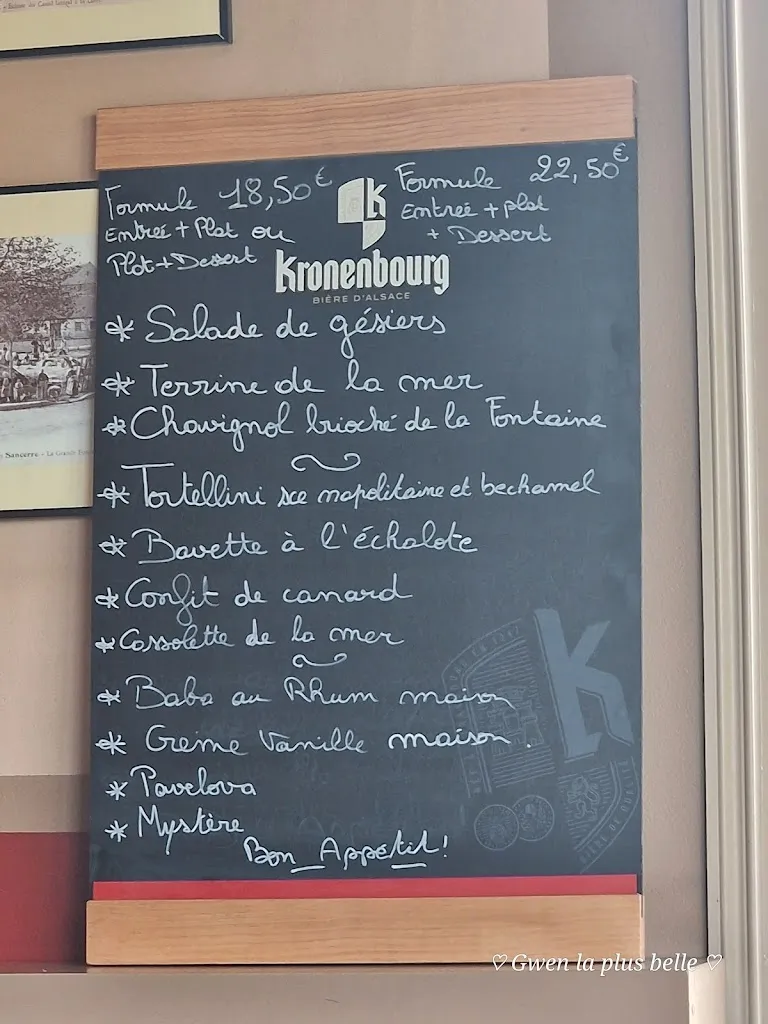 Formule 18,50€
Entrée + Plat ou
Plat + Dessert
Formule 22,50€
Entreé + plat
+ Dessert
Kronenbourg
BIÈRE D'ALSACE
* Salade de gésiers
* Terrine de la mer
* Chavignol brioché de la Fontaine
* Tortellini sce napolitaine et bechamel
* Bavette à l'échalote
* Confit de canard
* Cassolette de la mer
* Baba au Rhum maison
* Crème Vanille maison.
* Pavelova
* Mystère
Bon Appétit!
Sancerre - La Grande
♡ Gwen la plus belle ♡